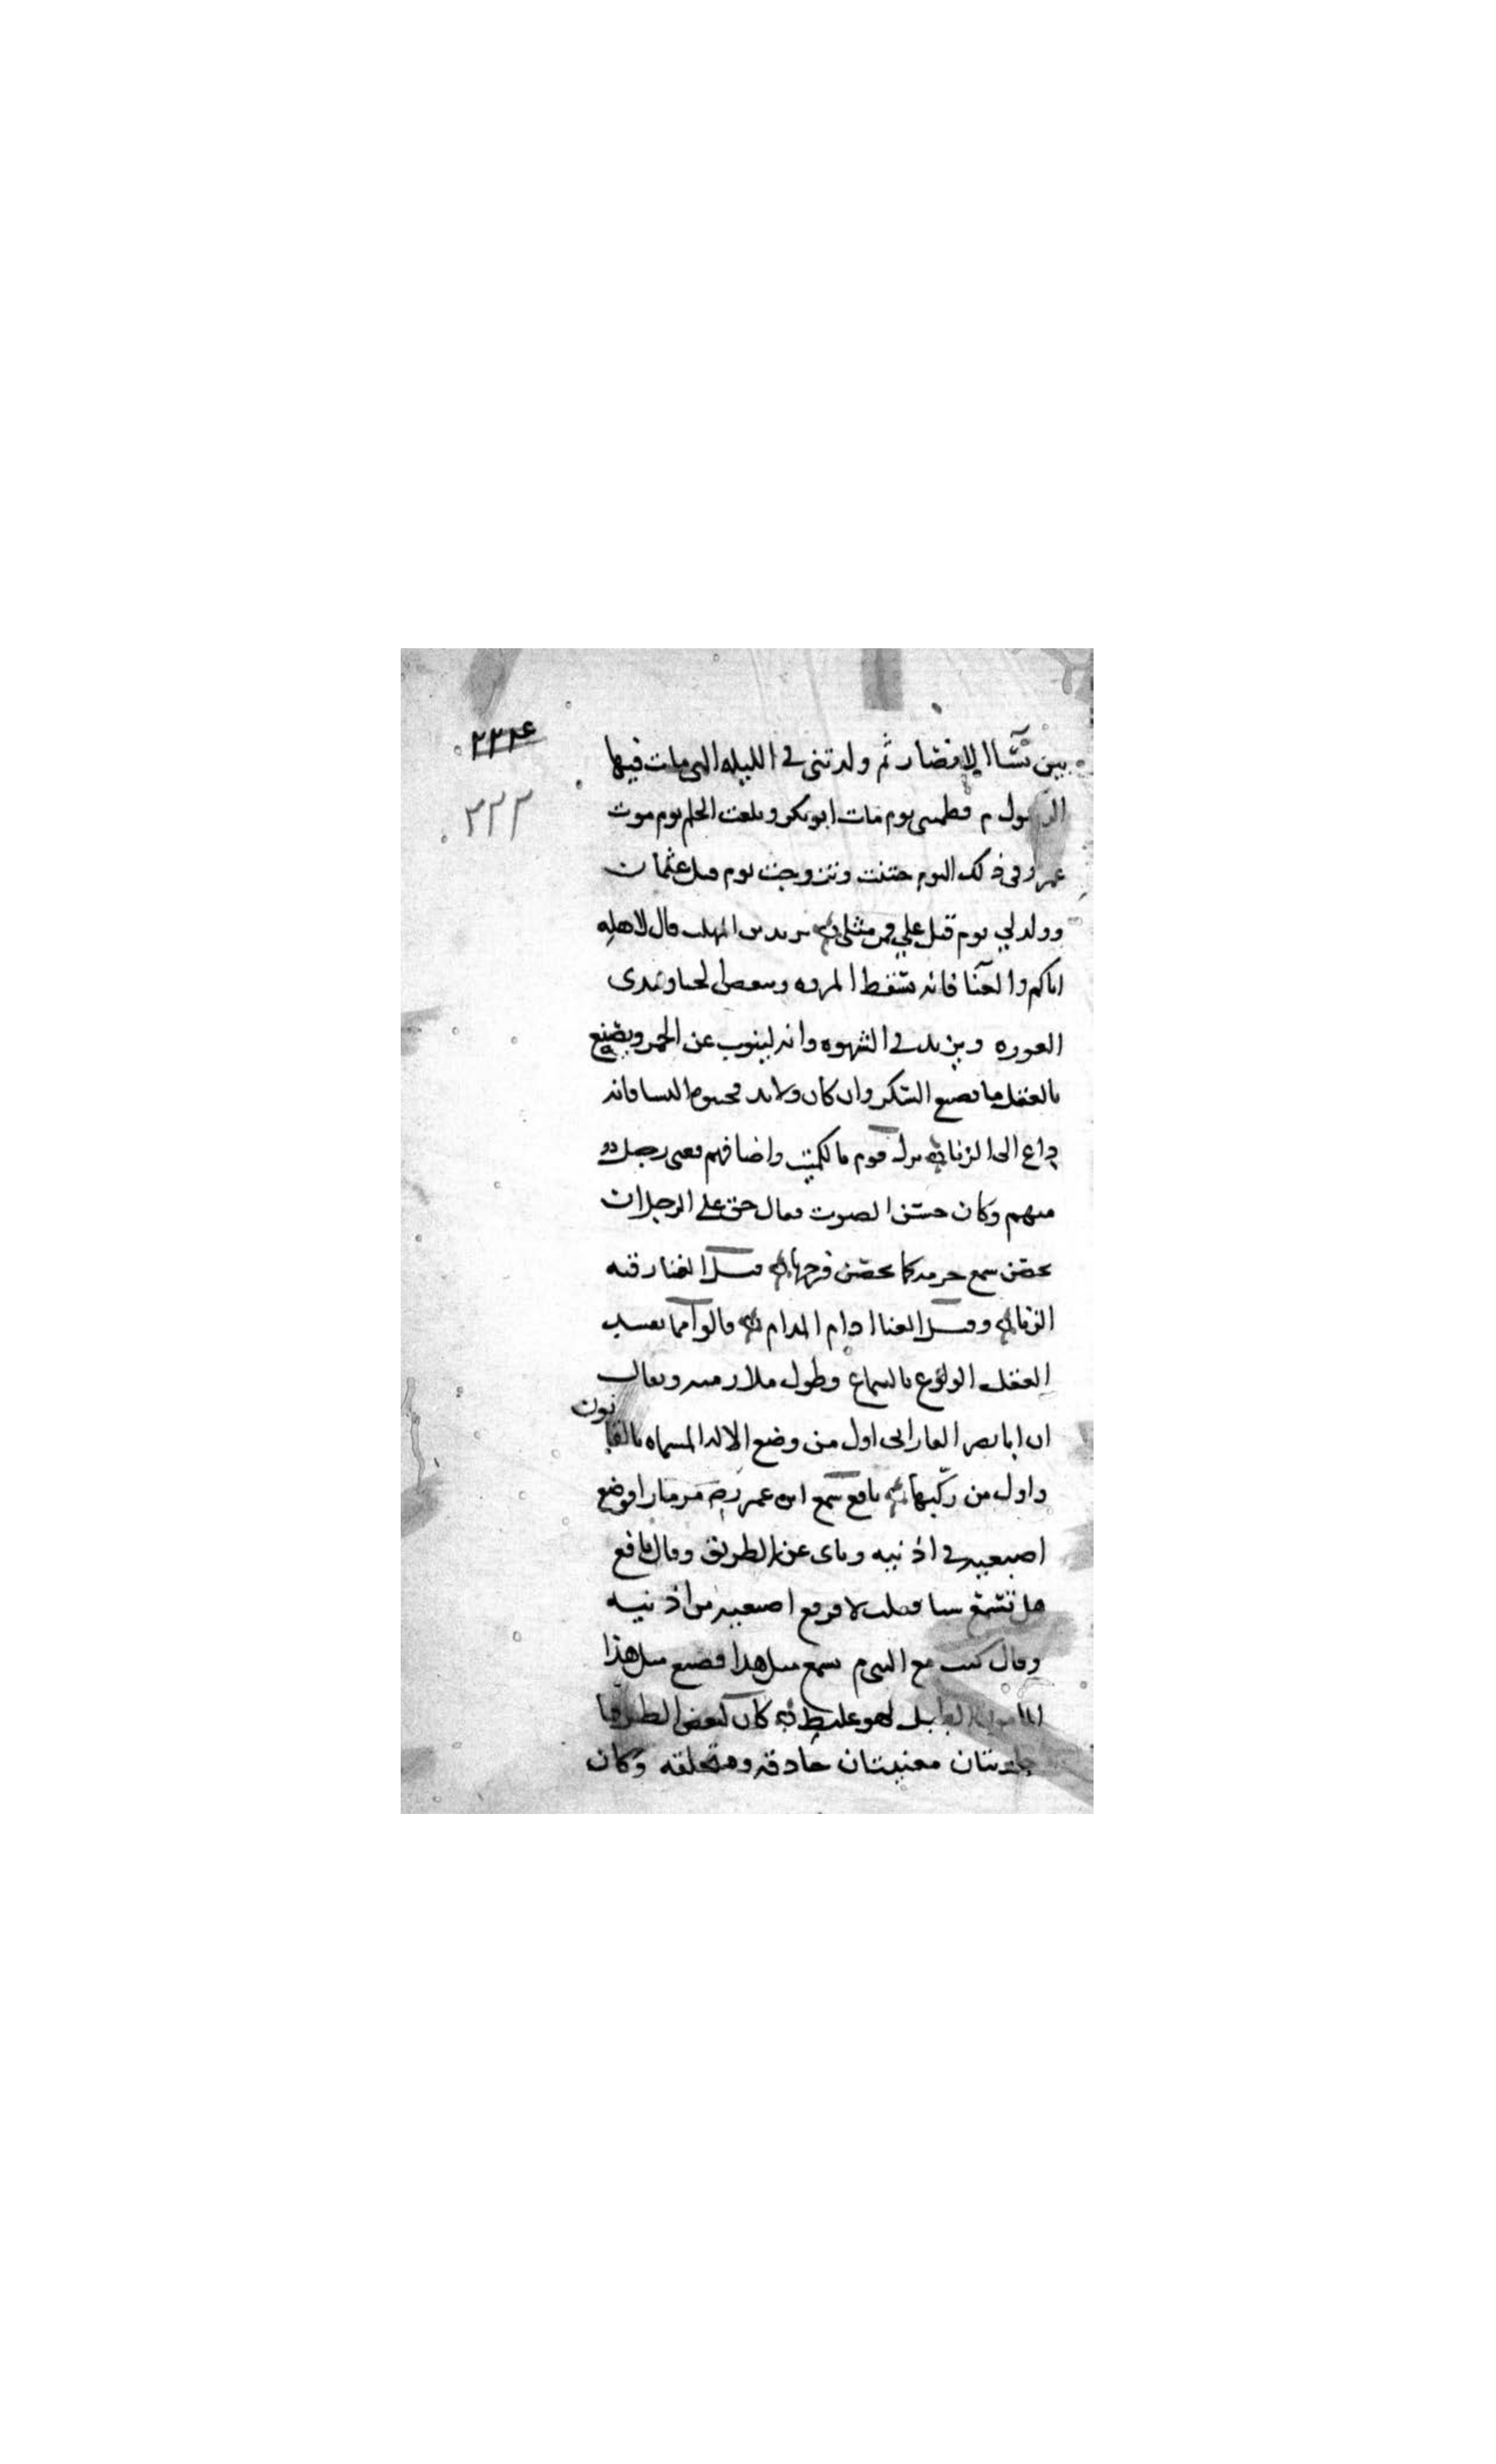 ٢٣٢٤
٢٣٣
بين نسا الانصار ثم ولدتنى في الليله التى مات فيها
الرسول م فطمتنى يوم مات ابو بكر وبلغت الحلم يوم موت
عمر وفى ذلك اليوم ختنت وتزوجت يوم قتل عثمان
وولد لي يوم قتل علي فمن مثلى يزيد بن المهلب قال لاهله
اياكم والغنا فانه يسقط المروه وينقص الحيا ويبدى
العوره ويزيد في الشهوه وانه لينوب عن الخمر ويصنع
بالعقل ما يصنع السكر وان كان ولا بد فجنبوه النسا فانه
داع الى الزنا نزل قوم بالكميت واضافهم فغنى رجل
منهم وكان حسن الصوت فقال حق على الرجل ان
يحصن سمع حرمه كما يحصن فرجها قيل الغنا رقيه
الزنا وقيل الغنا ادام المدام قالوا مما يفسد
العقل الولوع بالسماع وطول ملازمته ويقال
ان ابا نصر الفارابى اول من وضع الاله المسماه بالقا نون
واول من ركبها نافع سمع ابن عمر رضه مزمارا فوضع
اصبعيه في اذنيه وناى عن الطريق وقال يا نافع
هل تسمع شيا فقلت لا فرفع اصبعيه من اذنيه
وقال كنت مع النبى م سمع مثل هذا فصنع مثل هذا
لهو غليظ كان لبعض الظرفا
جاريتان مغنيتان حاذقه ومتخلفه وكان